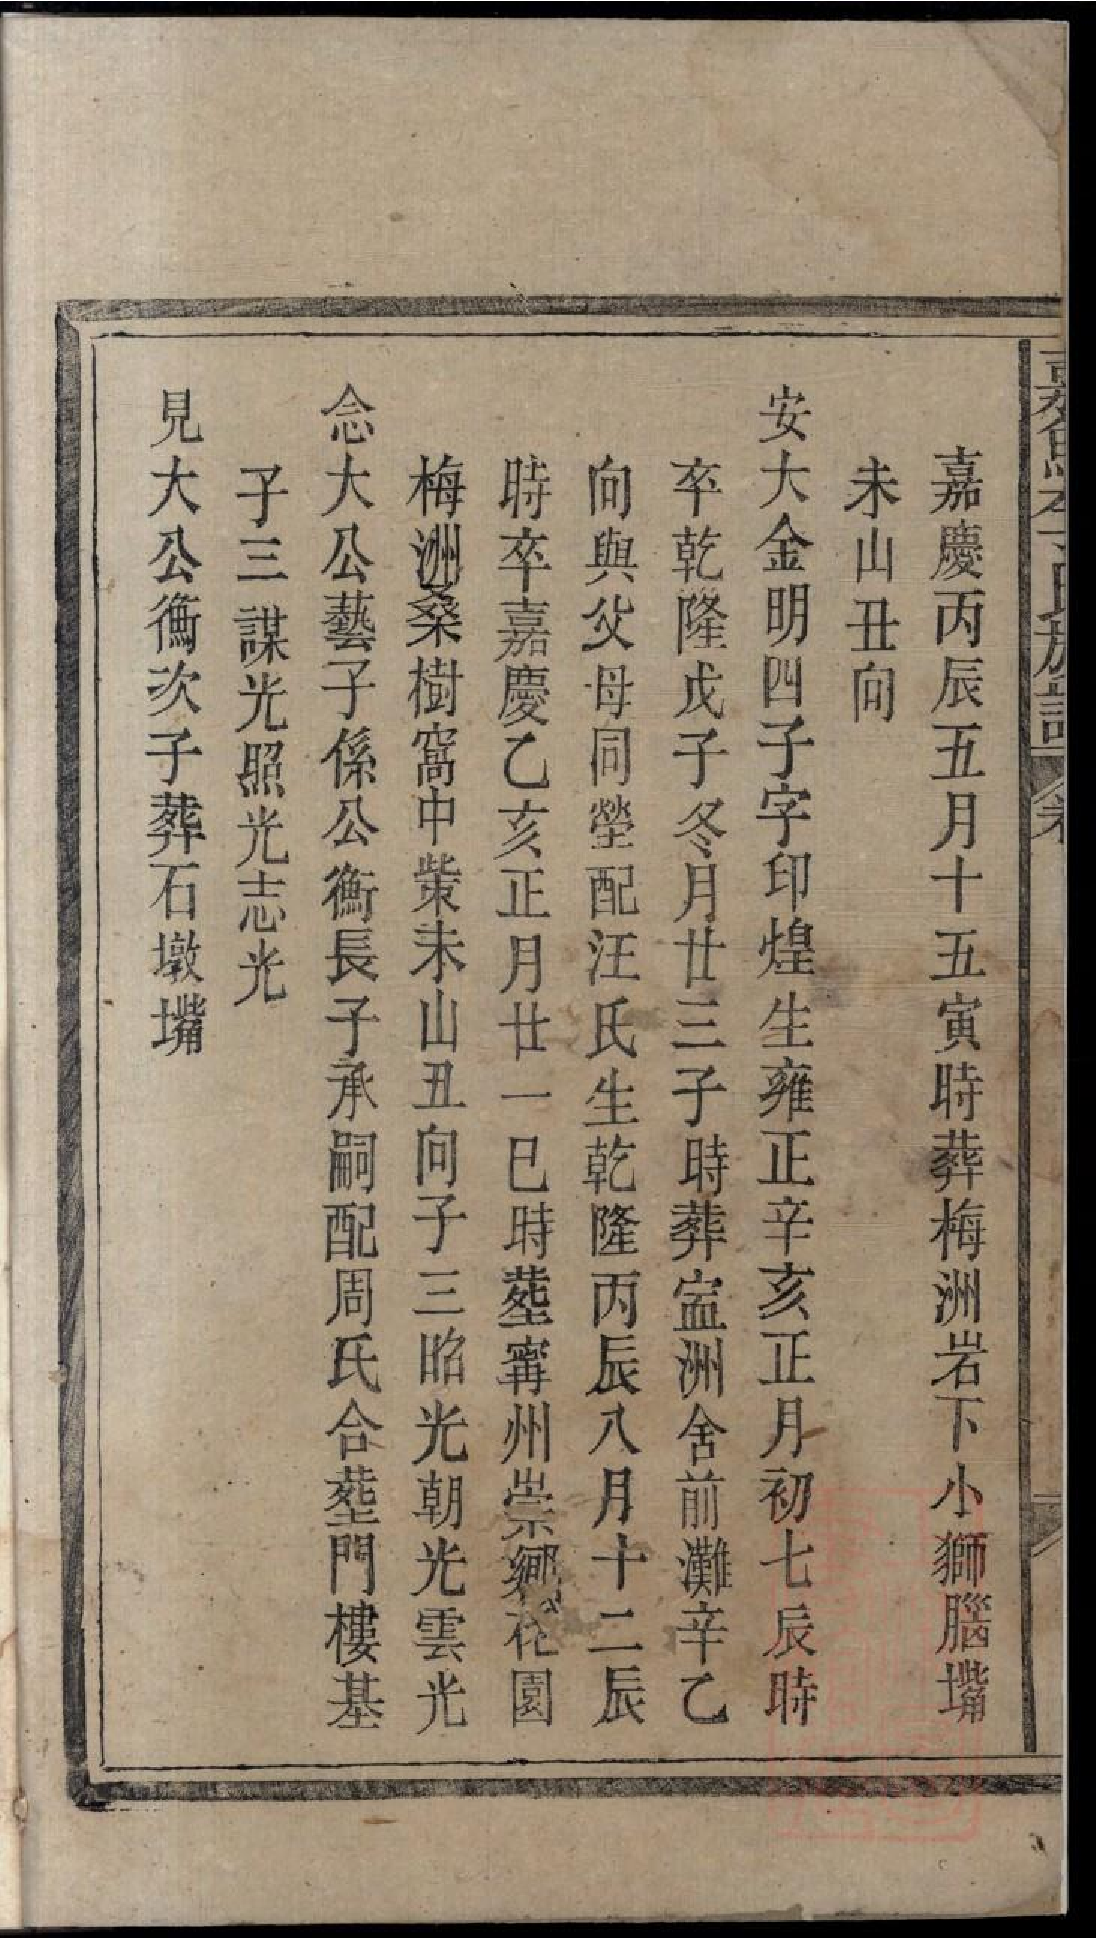 李氏族譜
嘉慶丙辰五月十五寅時葬梅洲岩下小獅腦嘴
未山丑向
安大金明四子字印煌生雍正辛亥正月初七辰時
卒乾隆戊子冬月廿三子時葬𥁕洲舍前灘辛乙
向與父母同塋配汪氏生乾隆丙辰八月十二辰
時卒嘉慶乙亥正月廿一巳時塟寗州崇鄉花園
梅洲桑樹窩中柴未山丑向子三昭光朝光雲光
念大公藝子係公衡長子承嗣配周氏合塟門樓基
子三謀光照光志光
見大公衡次子葬石墩嘴